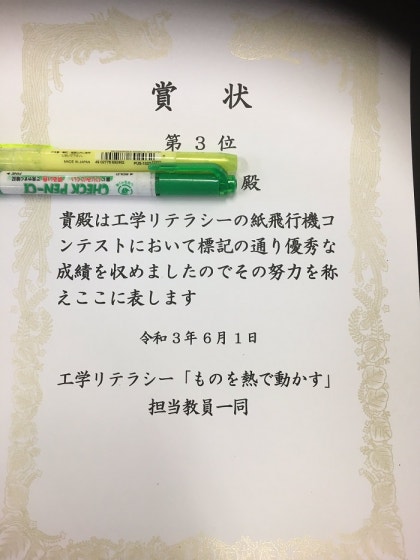 賞 状
第 3 位
CHECK PEN-α
殿
貴殿は工学リテラシーの紙飛行機コ
ンテストにおいて標記の通り優秀な
成績を収めましたのでその努力を称
えここに表します
令和３年６月１日
工学リテラシー「ものを熱で動かす」
担当教員一同